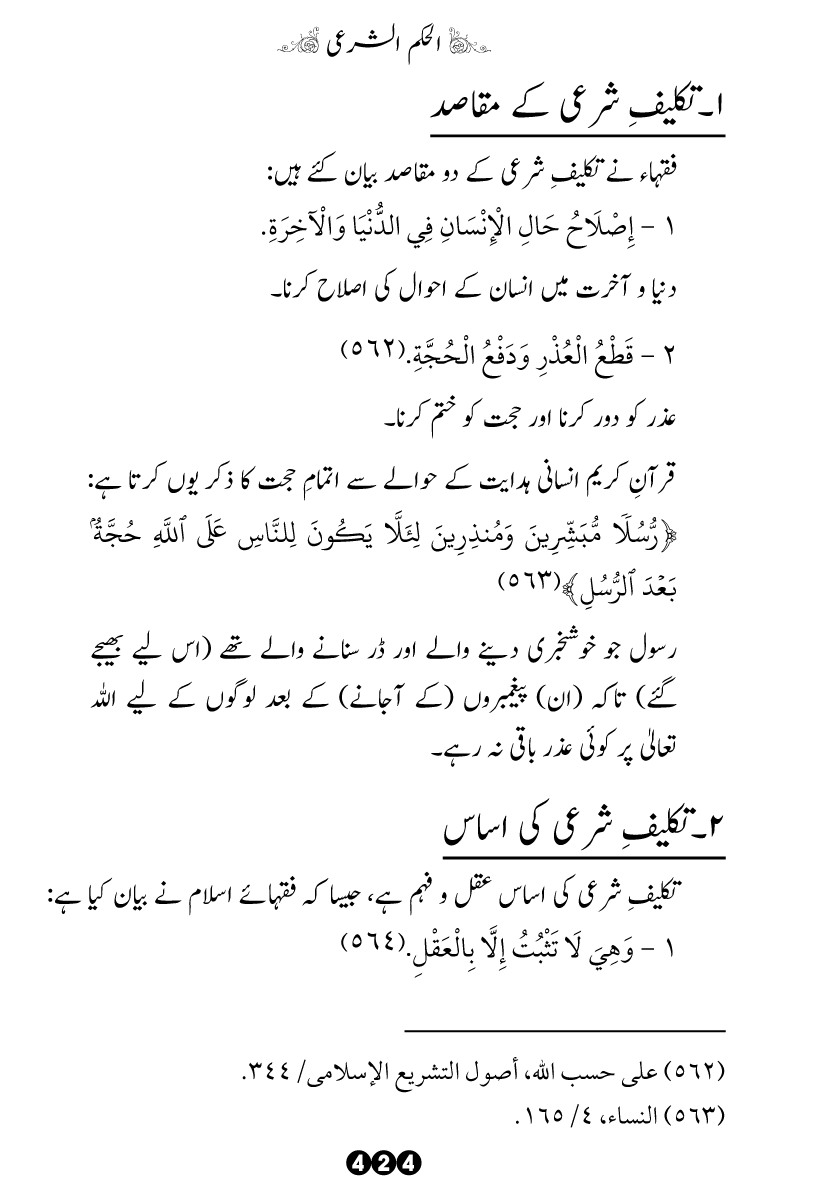 الحکم الشرعی
۱۔ تکلیفِ شرعی کے مقاصد
فقہاء نے تکلیفِ شرعی کے دو مقاصد بیان کئے ہیں:
١ - إِصْلَاحُ حَالِ الْإِنْسَانِ فِي الدُّنْيَا وَالْآخِرَةِ.
دنیا و آخرت میں انسان کے احوال کی اصلاح کرنا۔
٢ - قَطْعُ الْعُذْرِ وَدَفْعُ الْحُجَّةِ.(٥٦٢)
عذر کو دور کرنا اور حجت کو ختم کرنا۔
قرآنِ کریم انسانی ہدایت کے حوالے سے اتمامِ حجت کا ذکر یوں کرتا ہے:
﴿رُّسُلًا مُّبَشِّرِينَ وَمُنذِرِينَ لِئَلَّا يَكُونَ لِلنَّاسِ عَلَى ٱللَّهِ حُجَّةُۢ
بَعْدَ ٱلرُّسُلِ﴾(٥٦٣)
رسول جو خوشخبری دینے والے اور ڈر سنانے والے تھے (اس لیے بھیجے
گئے) تاکہ (ان) پیغمبروں (کے آجانے) کے بعد لوگوں کے لیے اللہ
تعالیٰ پر کوئی عذر باقی نہ رہے۔
۲۔ تکلیفِ شرعی کی اساس
تکلیفِ شرعی کی اساس عقل و فہم ہے، جیسا کہ فقہائے اسلام نے بیان کیا ہے:
١ - وَهِيَ لَا تَثْبُتُ إِلَّا بِالْعَقْلِ.(٥٦٤)
(٥٦٢) علی حسب الله، أصول التشریع الإسلامی/ ٣٤٤.
(٥٦٣) النساء، ٤/ ١٦٥.
424